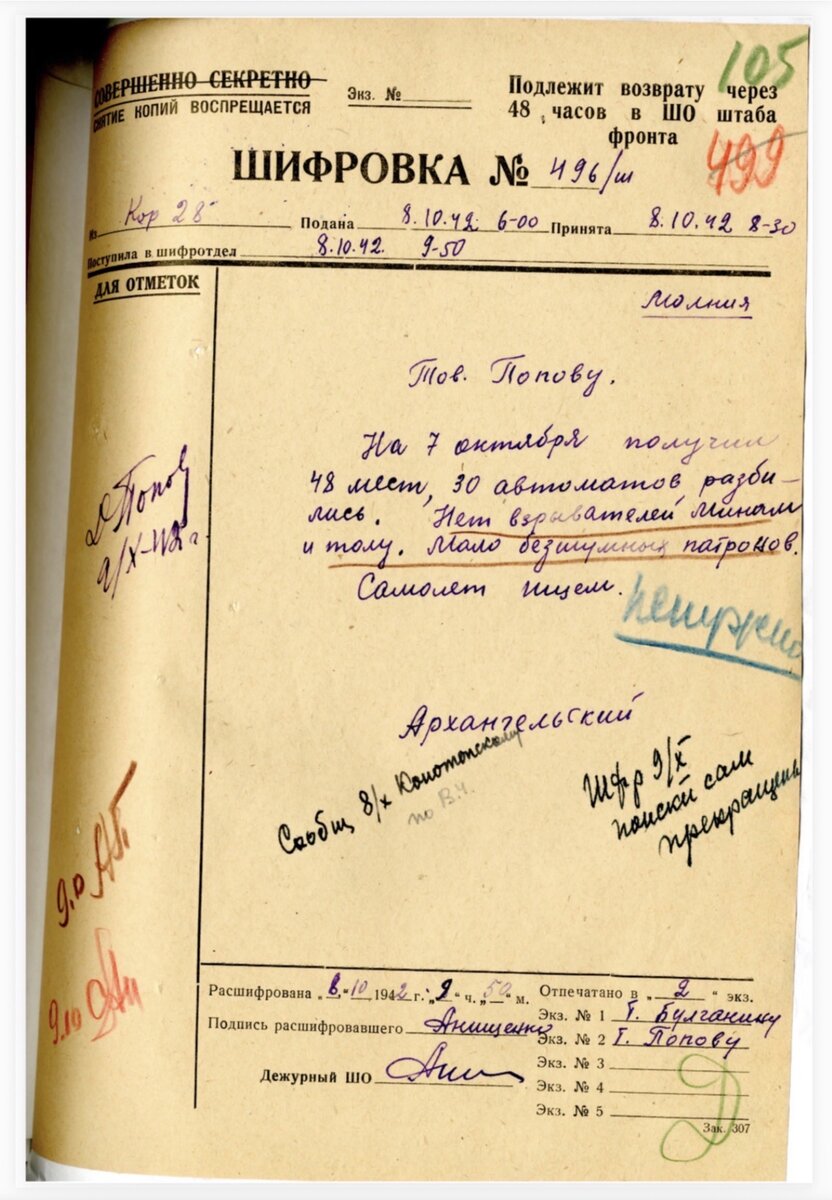 105
СОВЕРШЕННО СЕКРЕТНО
СНЯТИЕ КОПИЙ ВОСПРЕЩАЕТСЯ
Экз. №
Подлежит возврату через
48 часов в ШО штаба
фронта
499
ШИФРОВКА № 496/ш
Из Кор 28 Подана 8.10.42 6-00 Принята 8.10.42 8-30
Поступила в шифротдел 8.10.42. 9-50
ДЛЯ ОТМЕТОК
Молния
Тов. Попову.
На 7 октября получил
48 мест, 30 автоматов разби-
лись. Нет взрывателей минам
и толу. Мало безшумных патронов.
Самолет ищем.
ненужно
Д Попов
9/X-42 г
Архангельский
Сообщ 8/X Конотопскому
по В.Ч.
Шфр 9/X
поиски сам
прекращены
9.10
9.10
Расшифрована „8“ 10 1942 г. „9“ ч. „50“ м.
Подпись расшифровавшего Анищенко
Дежурный ШО
Отпечатано в „2“ экз.
Экз. № 1 Т. Булганину
Экз. № 2 Т. Попову
Экз. № 3
Экз. № 4
Экз. № 5
Зак. 307